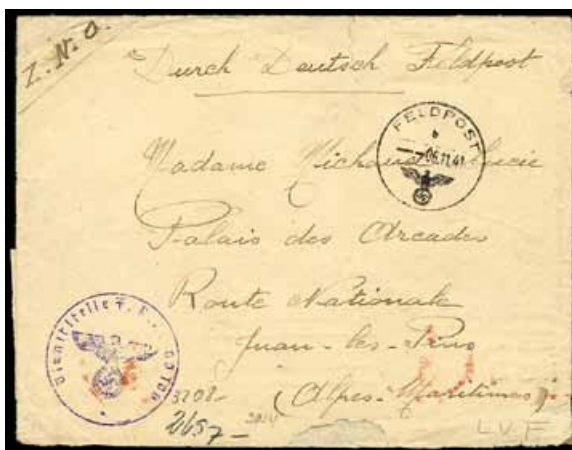 Z. N. O.
Durch Deutsch Feldpost
FELDPOST
b
06.11.41
Madame
Palais des Arcades
Route Nationale
Juan-les-Pins
(Alpes-Maritimes)
Dienststelle F.P.
3208-
2657-
LVF